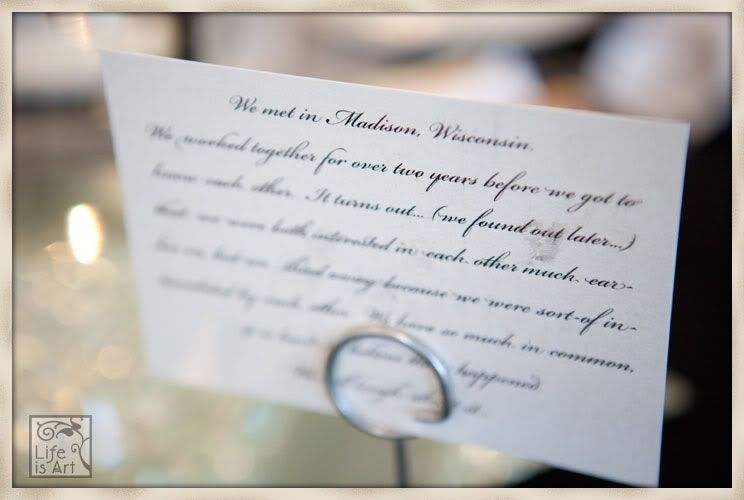 We met in Madison, Wisconsin.
We worked together for over two years before we got to
know each other. It turns out... (we found out later...)
that we were both interested in each other much ear-
lier but we shied away because we were sort-of in-
timidated by each other. We have so much in common,
happened.
it.
Life
is Art